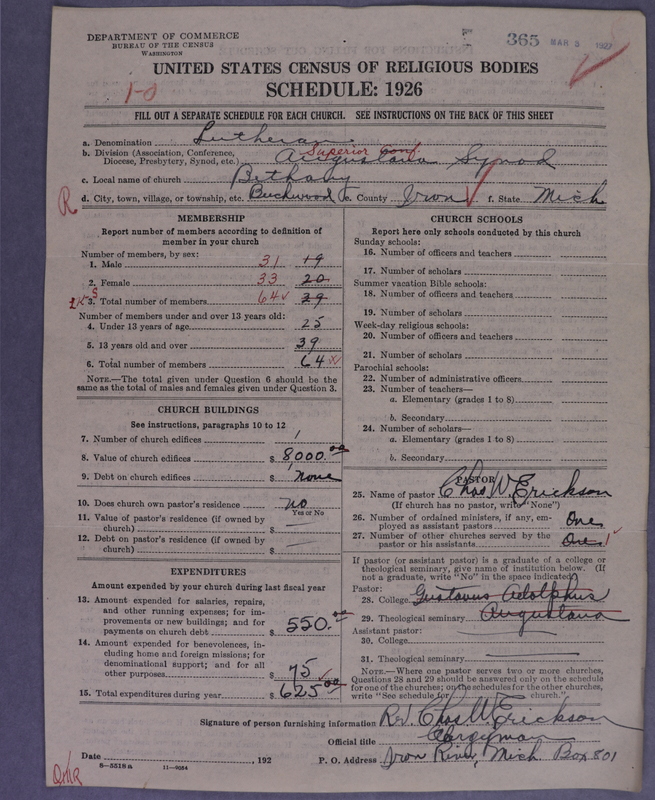 DEPARTMENT OF COMMERCE
BUREAU OF THE CENSUS
WASHINGTON
365 MAR 3 1927
UNITED STATES CENSUS OF RELIGIOUS BODIES
SCHEDULE: 1926
1-0
FILL OUT A SEPARATE SCHEDULE FOR EACH CHURCH. SEE INSTRUCTIONS ON THE BACK OF THIS SHEET
a. Denomination Lutheran
b. Division (Association, Conference, Superior Conf.
Diocese, Presbytery, Synod, etc.) Augustana Synod
c. Local name of church Bethany
R d. City, town, village, or township, etc. Beechwood e. County Iron f. State Mich
MEMBERSHIP
Report number of members according to definition of
member in your church
Number of members, by sex:
1. Male 31 19
2. Female 33 20
3. Total number of members 64 39
Number of members under and over 13 years old:
4. Under 13 years of age 25
5. 13 years old and over 39
6. Total number of members 64
NOTE.—The total given under Question 6 should be the
same as the total of males and females given under Question 3.
CHURCH BUILDINGS
See instructions, paragraphs 10 to 12
7. Number of church edifices 1
8. Value of church edifices $ 8000.00
9. Debt on church edifices $ none
10. Does church own pastor's residence no
Yes or No
11. Value of pastor's residence (if owned by
church) $ —
12. Debt on pastor's residence (if owned by
church) $ —
EXPENDITURES
Amount expended by your church during last fiscal year
13. Amount expended for salaries, repairs,
and other running expenses; for im-
provements or new buildings; and for
payments on church debt $ 550.00
14. Amount expended for benevolences, in-
cluding home and foreign missions; for
denominational support; and for all
other purposes $ 75
15. Total expenditures during year $ 625.00
CHURCH SCHOOLS
Report here only schools conducted by this church
Sunday schools:
16. Number of officers and teachers
17. Number of scholars
Summer vacation Bible schools:
18. Number of officers and teachers
19. Number of scholars
Week-day religious schools:
20. Number of officers and teachers
21. Number of scholars
Parochial schools:
22. Number of administrative officers
23. Number of teachers—
a. Elementary (grades 1 to 8)
b. Secondary
24. Number of scholars—
a. Elementary (grades 1 to 8)
b. Secondary
PASTOR
25. Name of pastor Chas W. Erickson
(If church has no pastor, write "None")
26. Number of ordained ministers, if any, em-
ployed as assistant pastors One
27. Number of other churches served by the
pastor or his assistants One 1
If pastor (or assistant pastor) is a graduate of a college or
theological seminary, give name of institution below. (If
not a graduate, write "No" in the space indicated)
Pastor:
28. College Gustavus Adolphus
29. Theological seminary Augustana
Assistant pastor:
30. College
31. Theological seminary
NOTE.—Where one pastor serves two or more churches,
Questions 28 and 29 should be answered only on the schedule
for one of the churches; on the schedules for the other churches,
write "See schedule for church."
Signature of person furnishing information Rev. Chas W. Erickson
Official title Clergyman
Date , 192 P. O. Address Iron River, Mich. Box 801
6—5518 a 11—9084